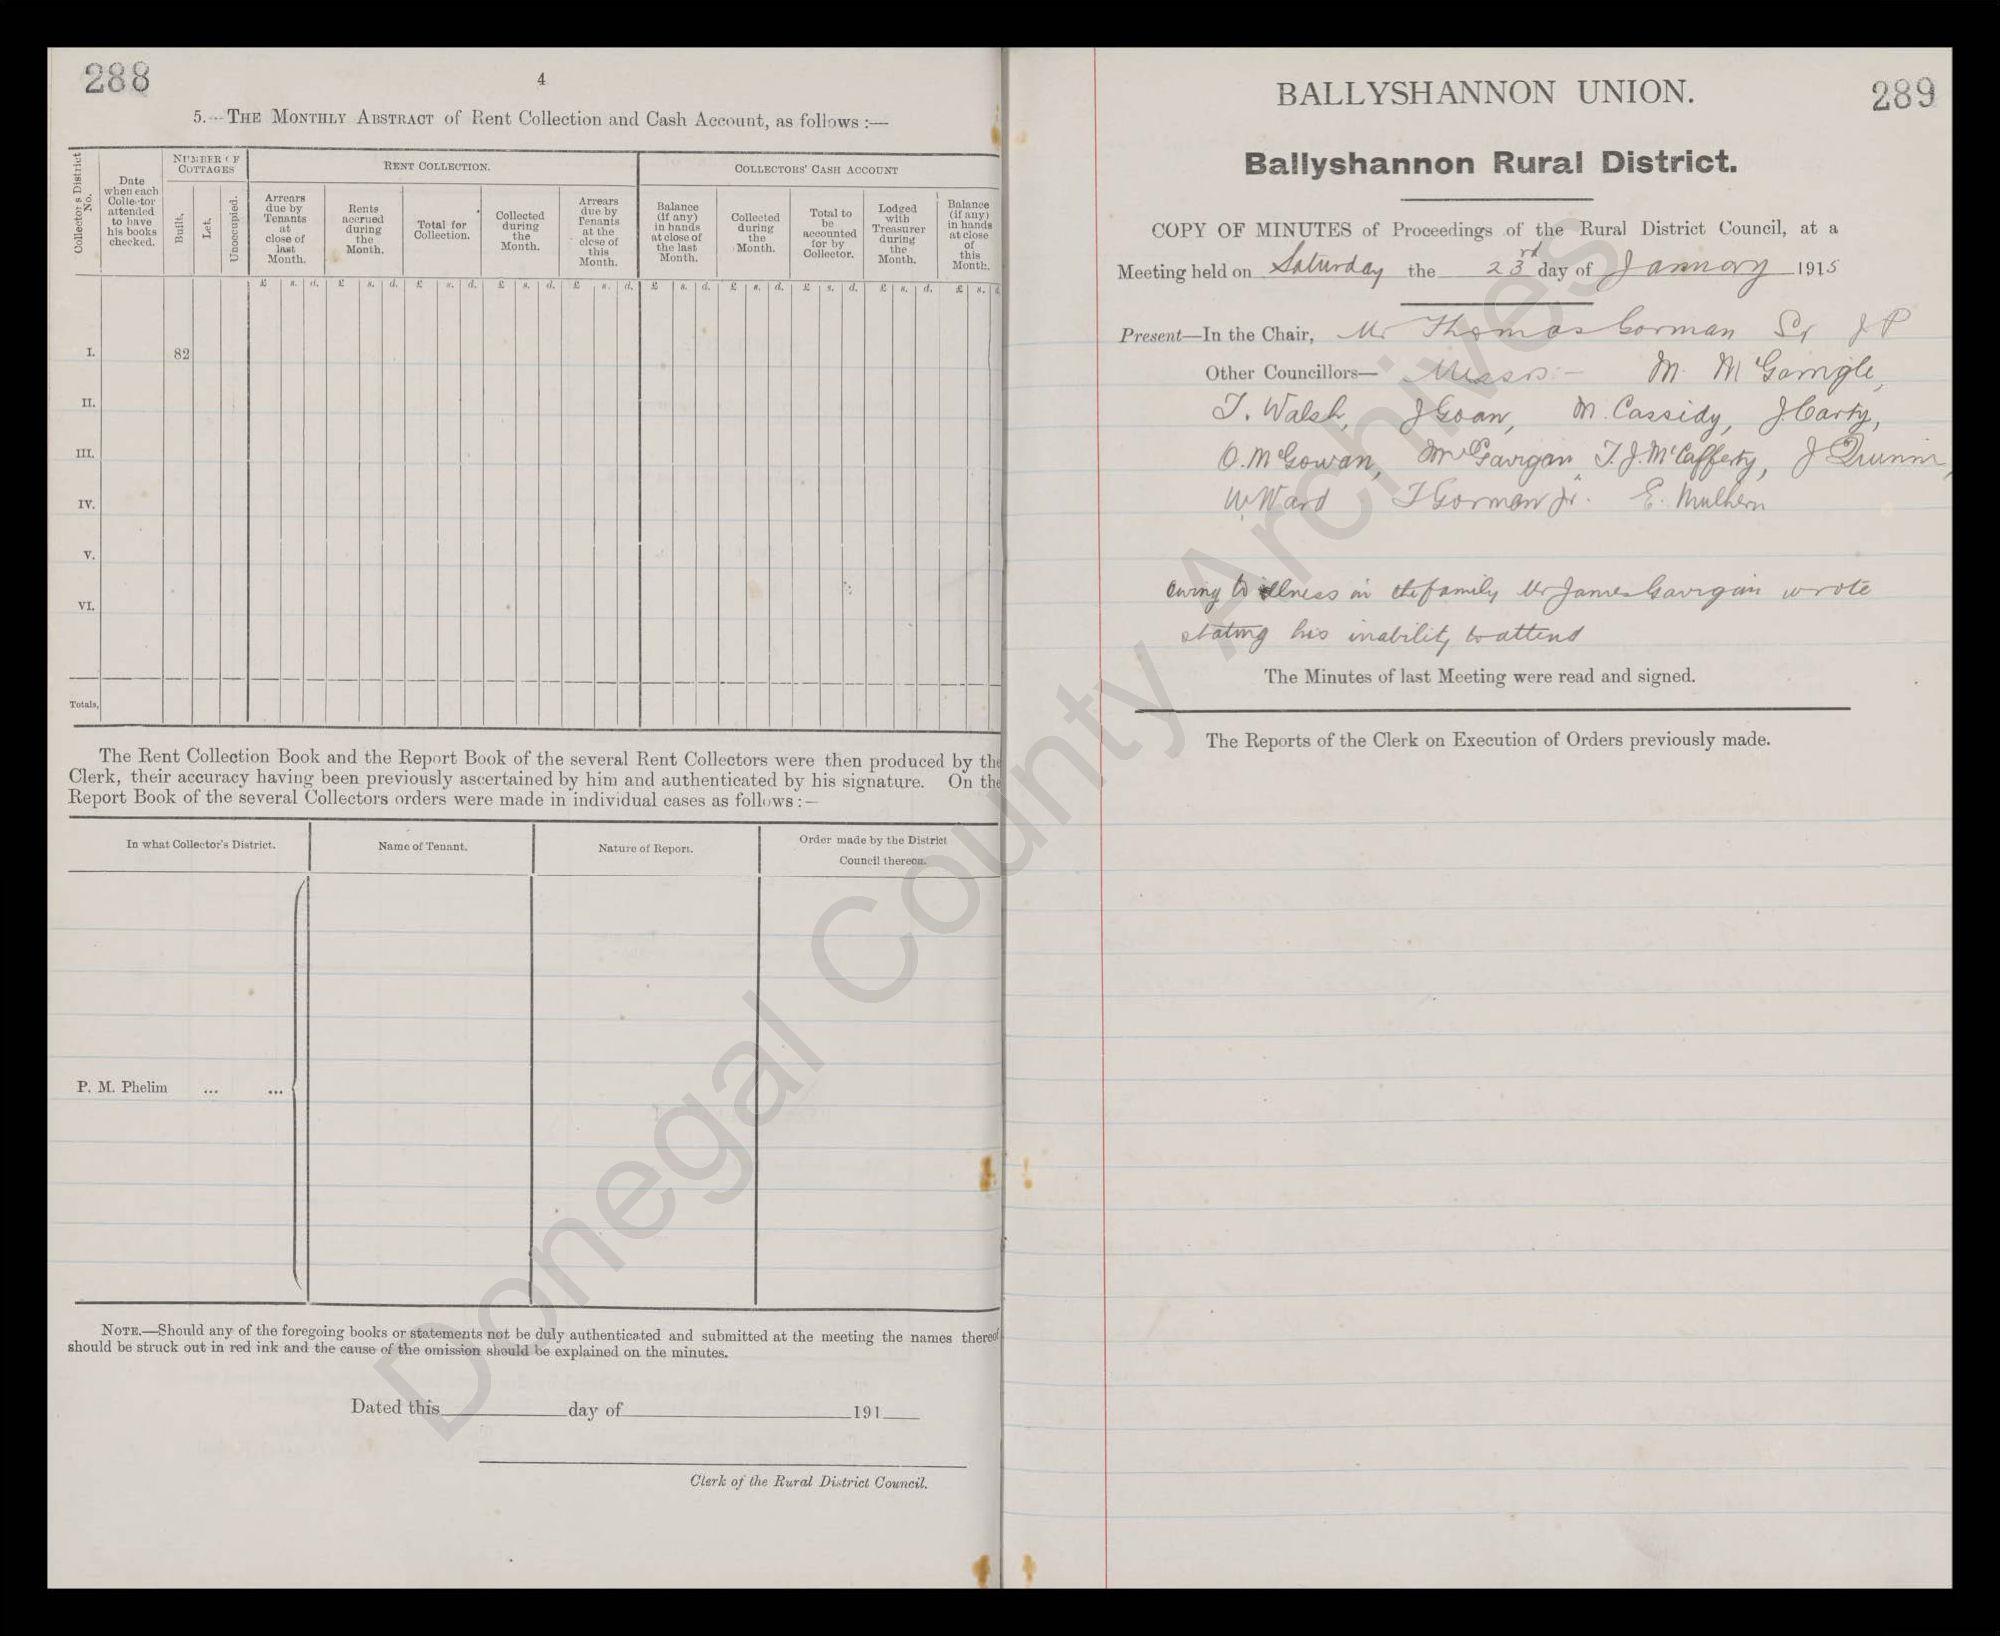 288
4
5.—THE MONTHLY ABSTRACT of Rent Collection and Cash Account, as follows :—
Collector's District No.
Date when each Collector attended to have his books checked.
NUMBER OF COTTAGES
Built.
Let.
Unoccupied.
RENT COLLECTION.
Arrears due by Tenants at close of last Month.
Rents accrued during the Month.
Total for Collection.
Collected during the Month.
Arrears due by Tenants at the close of this Month.
COLLECTORS' CASH ACCOUNT
Balance (if any) in hands at close of the last Month.
Collected during the Month.
Total to be accounted for by Collector.
Lodged with Treasurer during the Month.
Balance (if any) in hands at close of this Month.
£ s. d. £ s. d. £ s. d. £ s. d. £ s. d. £ s. d. £ s. d. £ s. d. £ s. d. £ s. d.
I. 82
II.
III.
IV.
V.
VI.
Totals,
The Rent Collection Book and the Report Book of the several Rent Collectors were then produced by the
Clerk, their accuracy having been previously ascertained by him and authenticated by his signature. On the
Report Book of the several Collectors orders were made in individual cases as follows :—
In what Collector's District.
Name of Tenant.
Nature of Report.
Order made by the District
Council thereon.
P. M. Phelim ... ...
NOTE.—Should any of the foregoing books or statements not be duly authenticated and submitted at the meeting the names thereof
should be struck out in red ink and the cause of the omission should be explained on the minutes.
Dated this day of 191
Clerk of the Rural District Council.
BALLYSHANNON UNION.
289
Ballyshannon Rural District.
COPY OF MINUTES of Proceedings of the Rural District Council, at a
Meeting held on Saturday the 23rd day of January 1915
Present—In the Chair, Mr Thomas Gorman Sr J P
Other Councillors— Messrs :- M. McGonigle,
T. Walsh, J Goan, M. Cassidy, J Carty,
O. McGowan, M Gavigan, T. J. McCafferty, J
W. Ward T Gorman Jr. E. Mulhern
Owing to illness in the family Mr James Gavigan wrote
stating his inability to attend
The Minutes of last Meeting were read and signed.
The Reports of the Clerk on Execution of Orders previously made.
Donegal County Archives